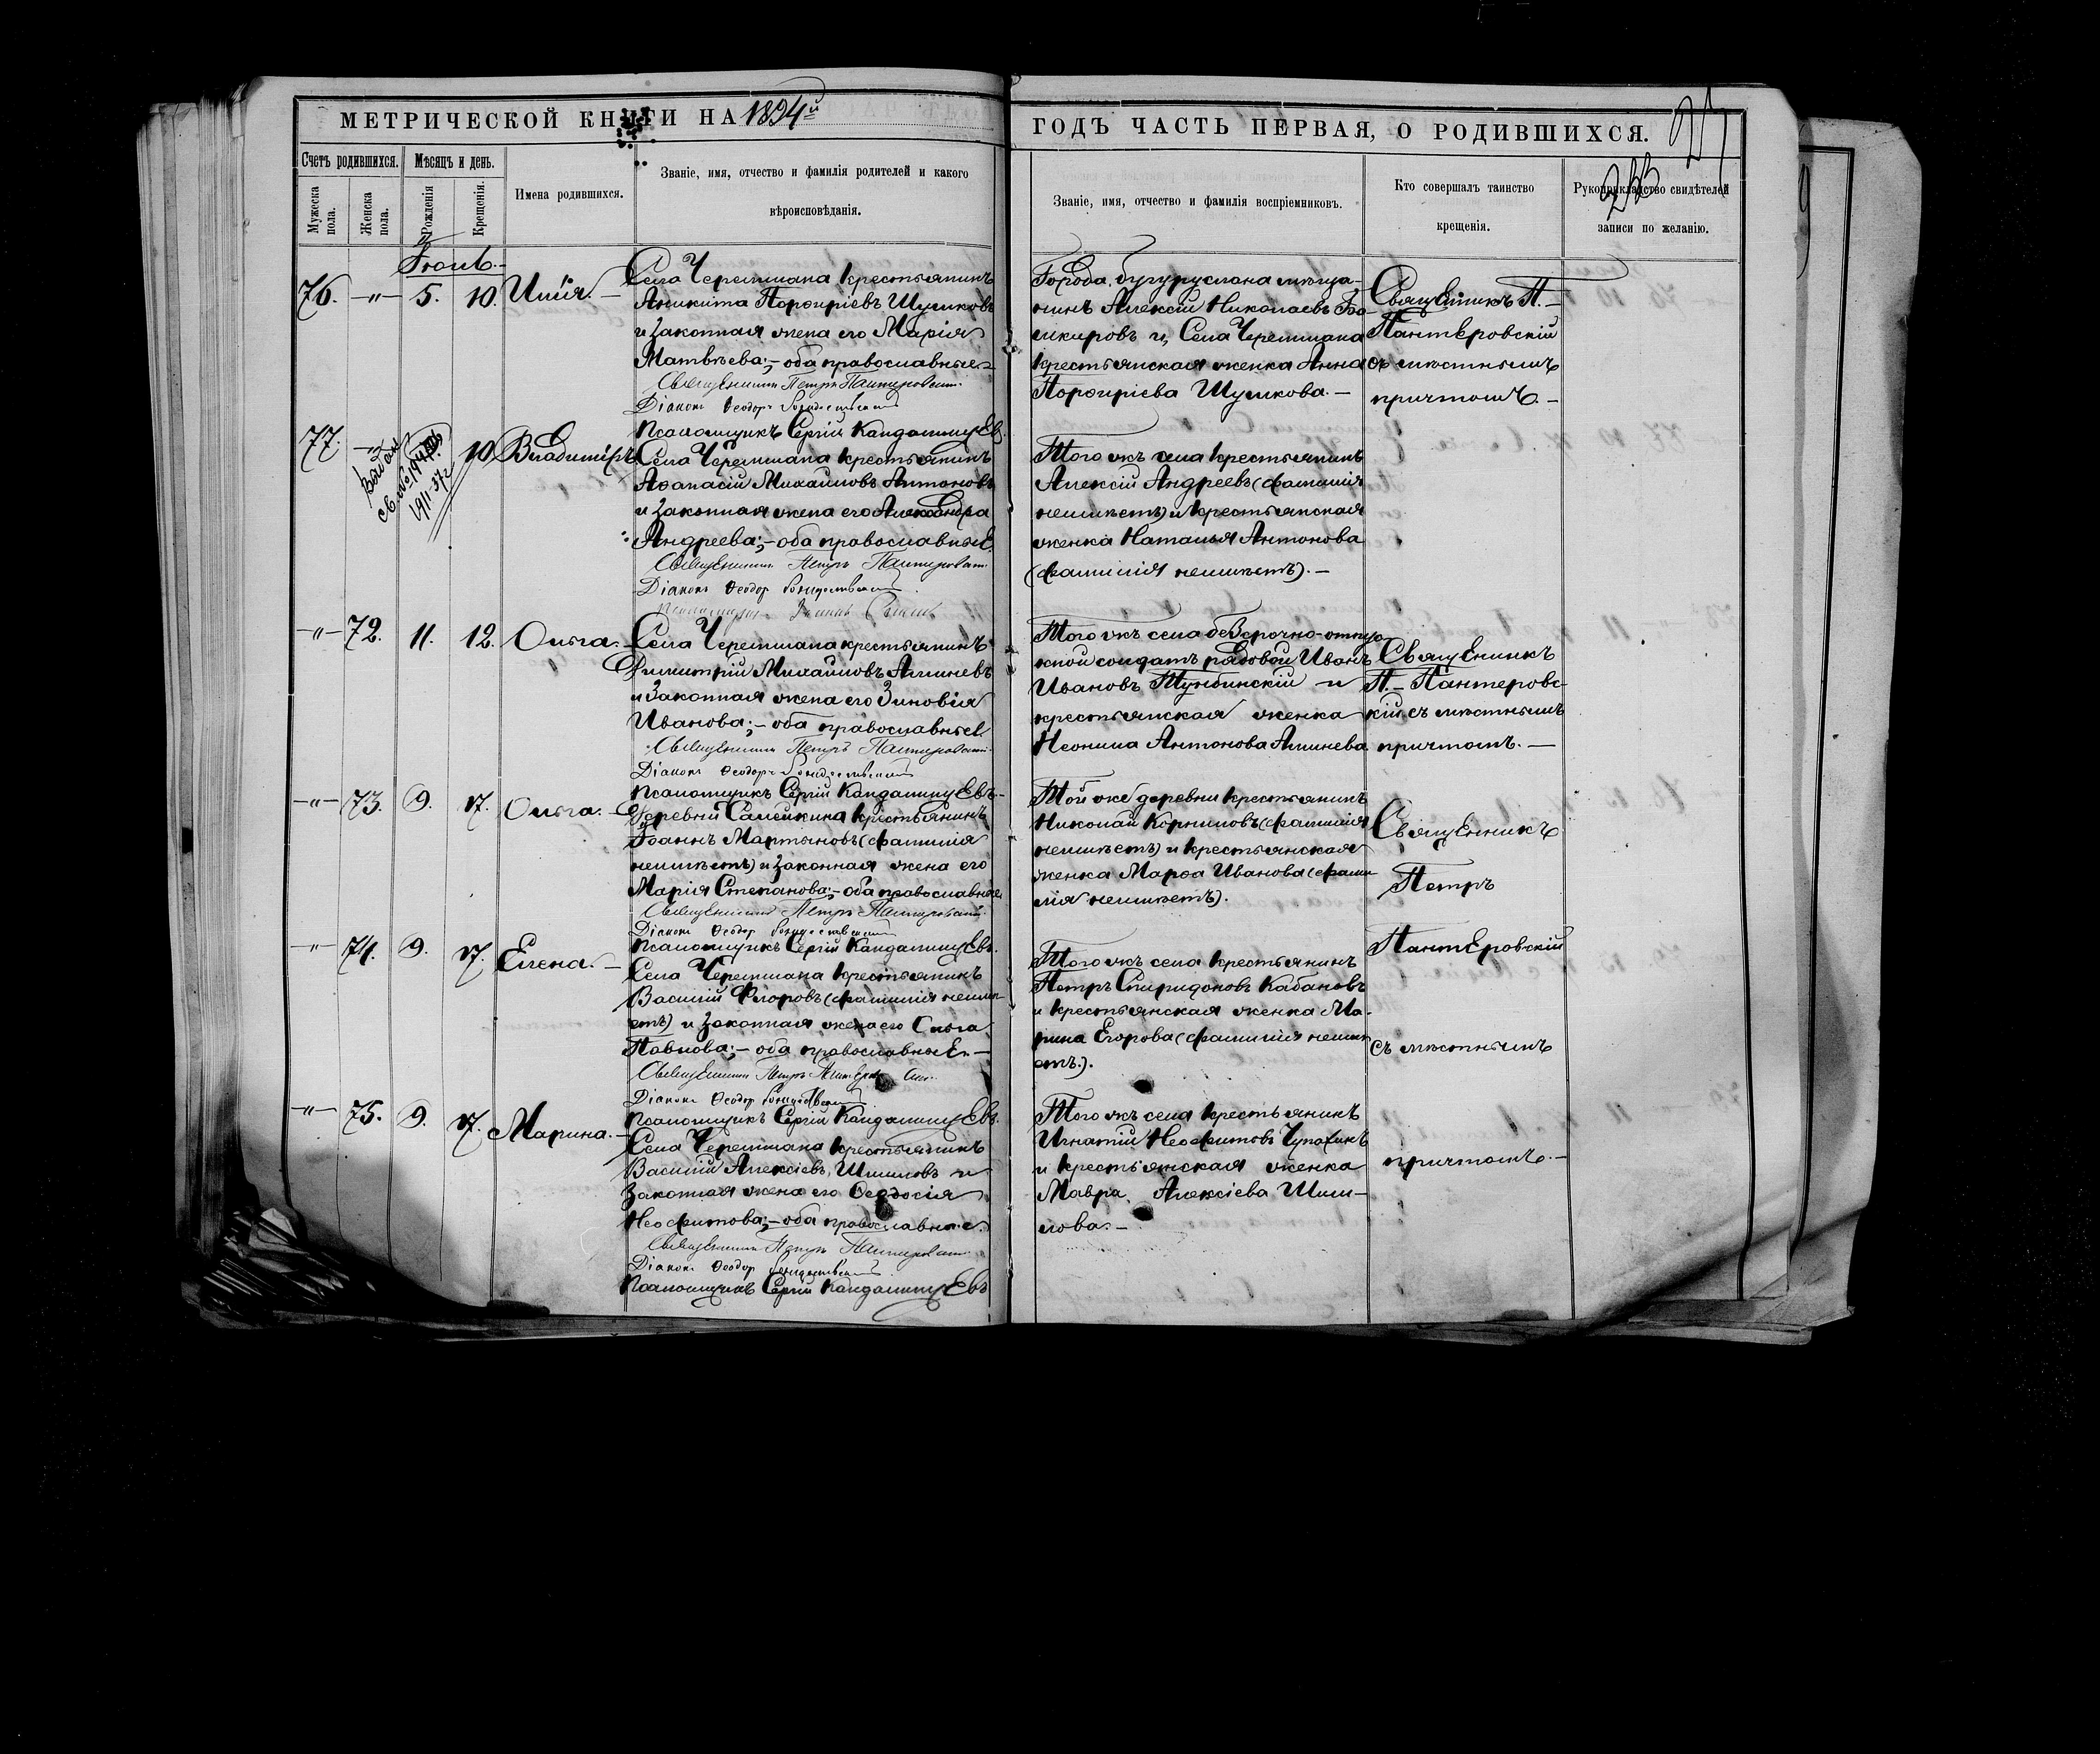 МЕТРИЧЕСКОЙ КНИГИ НА 1894й
ГОДЪ ЧАСТЬ ПЕРВАЯ, О РОДИВШИХСЯ.
Счетъ родившихся.
Мѣсяцъ и день.
Мужеска пола.
Женска пола.
Рожденія
Крещенія.
Имена родившихся.
Званіе, имя, отчество и фамилія родителей и какого
вѣроисповѣданія.
Званіе, имя, отчество и фамилія воспріемниковъ.
Кто совершалъ таинство
крещенія.
Рукоприкладство свидѣтелей
записи по желанію.
Іюль.
76. -"- 5. 10. Илія. —
Села Черемшана крестьянинъ
Аникита Порфиріевъ Шумковъ
и законная жена его Марія
Матвѣева; – оба православные. –
Священникъ Петръ Пантеровскій.
Діаконъ Ѳеодоръ Рождественскій
Псаломщикъ Сергій Кандалинцевъ.
Города Бугуруслана мѣща-
нинъ Алексій Николаевъ Ба-
шкировъ и, Села Черемшана
крестьянская женка Анна
Порфиріева Шумкова. –
Священникъ П. –
Пантеровскій
съ мѣстнымъ
причтомъ. –
77. 10 Владиміръ
1911-37г
Села Черемшана крестьянинъ
Аѳанасій Михайловъ Антоновъ
и законная жена его Александра
Андреева; – оба православные.
Священникъ Петръ Пантеровскій
Діаконъ Ѳеодоръ Рождественскій
Того жъ села крестьянинъ
Алексій Андреевъ (фамиліи
неимѣетъ) и крестьянская
женка Наталья Антонова
(фамилія неимѣетъ). –
-"- 72. 11. 12. Ольга. –
Села Черемшана крестьянинъ
Димитрій Михайловъ Алиневъ
и законная жена его Зиновія
Иванова; – оба православные.
Священникъ Петръ Пантеровскій.
Діаконъ Ѳеодоръ Рождественскій
Псаломщикъ Сергій Кандалинцевъ. –
Того жъ села безсрочно-отпу-
кной солдатъ рядовой Иванъ
Ивановъ и
крестьянская женка
Неонила Антонова Алинева
Священникъ
П. – Пантеровс-
кій съ мѣстнымъ
причтомъ. —
-"- 73. 9. 17. Ольга. –
Деревни крестьянинъ
Іоаннъ Мартыновъ (фамилія
неимѣетъ) и законная жена его
Марія Степанова; – оба православные.
Священникъ Петръ Пантеровскій.
Діаконъ Ѳеодоръ Рождественскій
Псаломщикъ Сергій Кандалинцевъ.
Той же деревни крестьянинъ
Николай Корниловъ (фамилія
неимѣетъ) и крестьянская
женка Марѳа Иванова (фами-
лія неимѣетъ).
Священникъ
Петръ
-"- 74. 9. 17. Елена. –
Села Черемшана крестьянинъ
Василій Флоровъ (фамилія неимѣ-
етъ) и законная жена его Ольга
Павлова; – оба православные. –
Священникъ Петръ
Діаконъ Ѳеодоръ Рождественскій
Псаломщикъ Сергій Кандалинцевъ.
Того жъ села крестьянинъ
Петръ Спиридоновъ Кабановъ
и крестьянская женка Ма-
рина Егорова (фамилія неимѣ-
етъ.).
Пантеровскій
съ мѣстнымъ
-"- 75. 9. 17. Марина. –
Села Черемшана крестьянинъ
Василій Алексіевъ Шиловъ и
законная жена его Ѳеодосія
Неофитова; – оба православные.
Священникъ Петръ Пантеровскій
Діаконъ Ѳеодоръ Рождественскій
Псаломщикъ Сергій Кандалинцевъ
Того жъ села крестьянинъ
Игнатій Неофитовъ
и крестьянская женка
Мавра Алексіева Шим-
лова. –
причтомъ. –